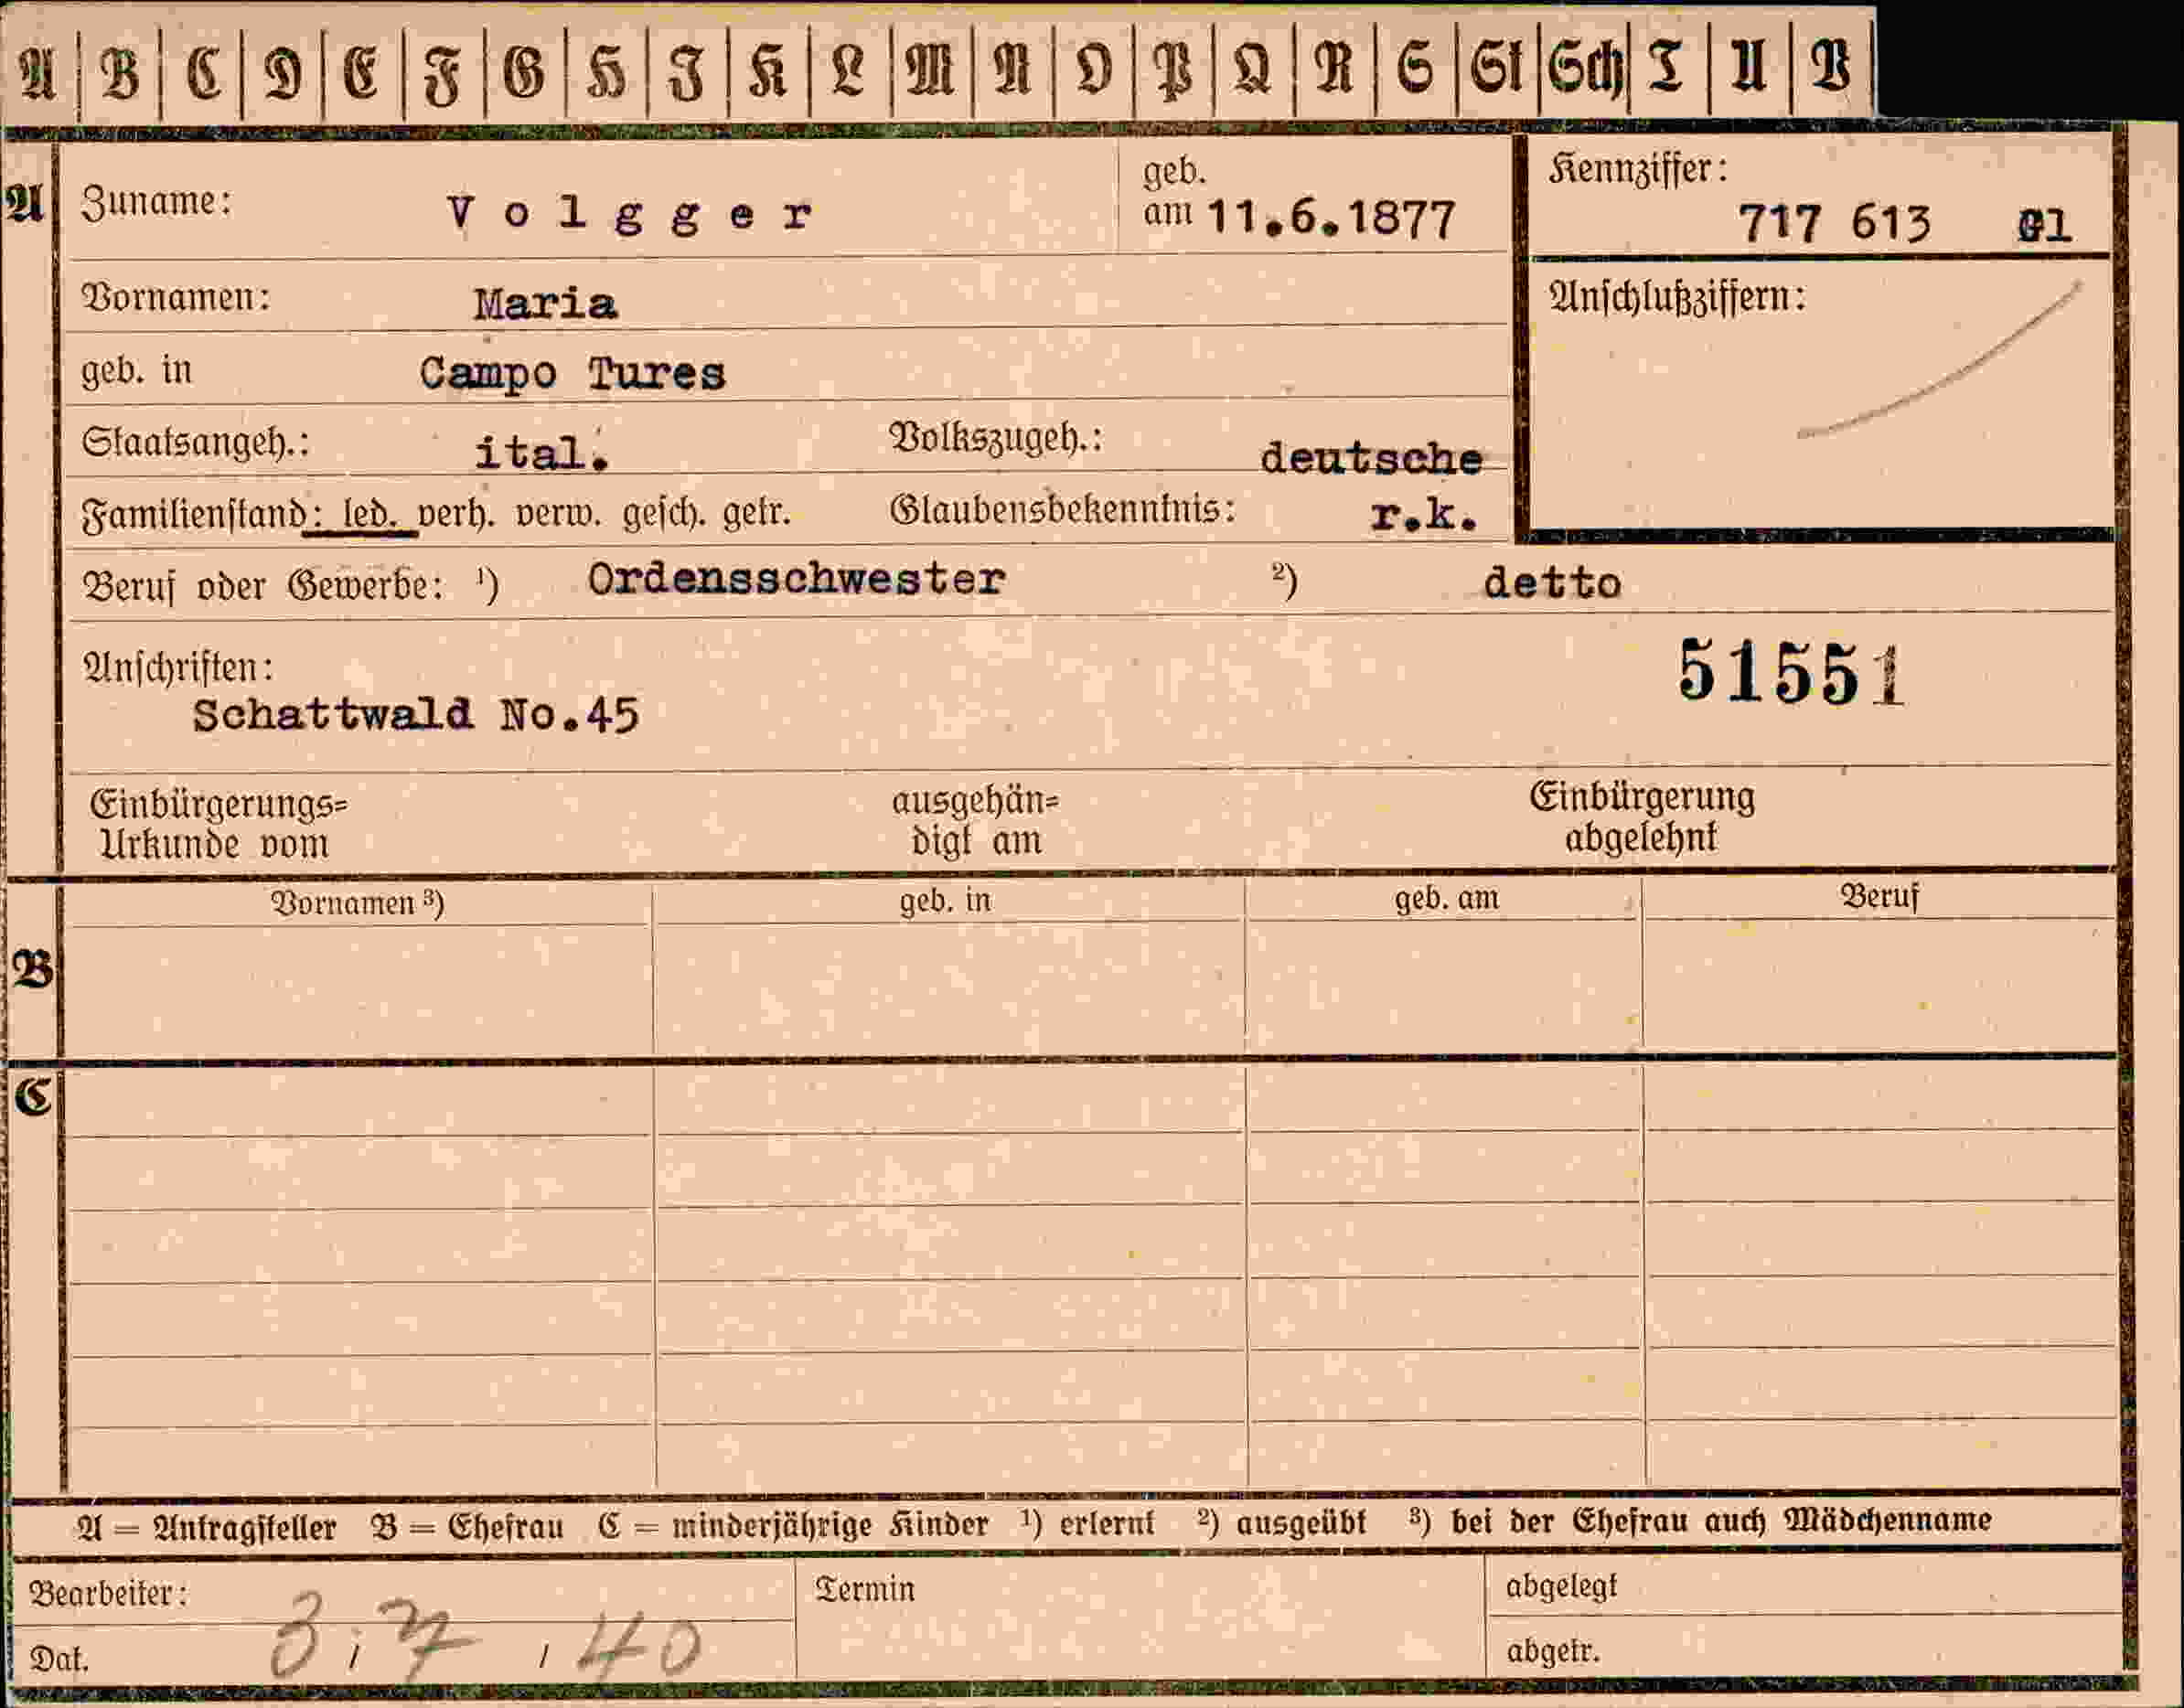 A B C D E F G H I K L M N O P Q R S St Sch T U V
A Zuname: Volgger geb. am 11.6.1877 Kennziffer: 717 613
Vornamen: Maria Anschlußziffern:
geb. in Campo Tures
Staatsangeh.: ital. Volkszugeh.: deutsche
Familienstand: led. verh. verw. gesch. getr. Glaubensbekenntnis: r.k.
Beruf oder Gewerbe: ¹) Ordensschwester ²) detto
Anschriften: 51551
Schattwald No.45
Einbürgerungs= ausgehän= Einbürgerung
Urkunde vom digt am abgelehnt
Vornamen ³) geb. in geb. am Beruf
B
C
A = Antragsteller B = Ehefrau C = minderjährige Kinder ¹) erlernt ²) ausgeübt ³) bei der Ehefrau auch Mädchenname
Bearbeiter: Termin abgelegt
Dat. 3 / 7 / 40 abgetr.